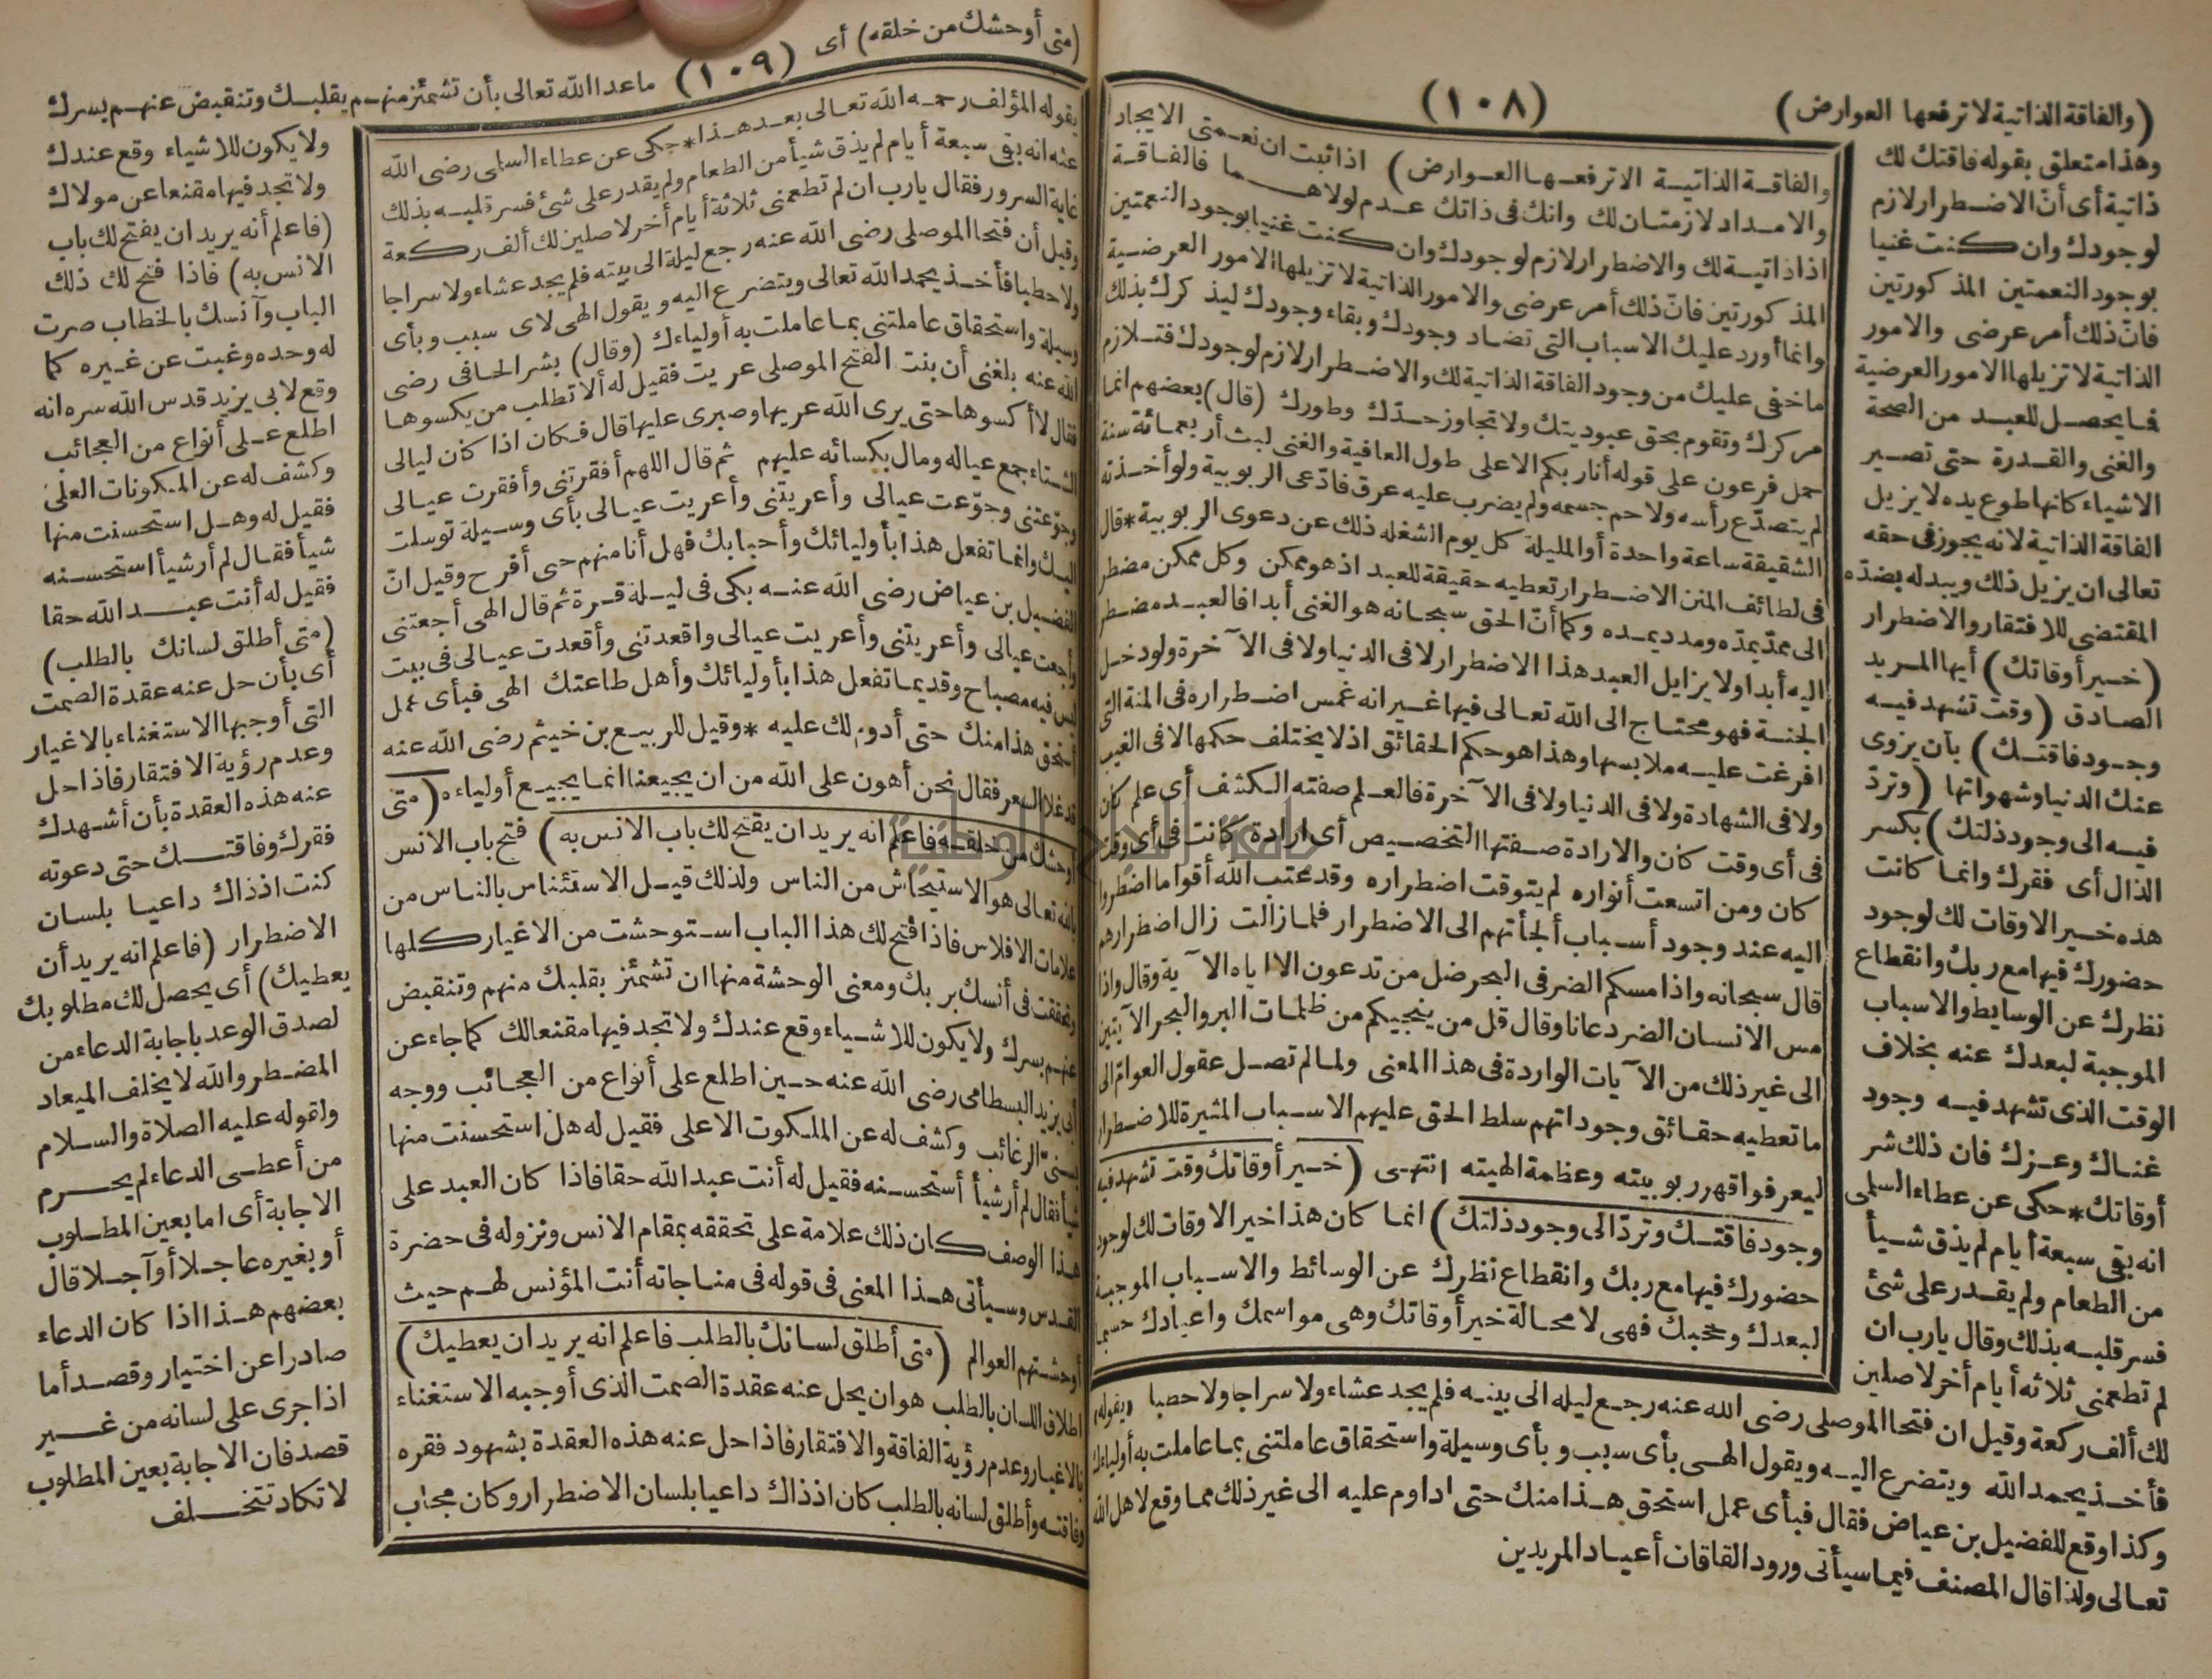 (والفاقة الذاتية لا ترفعها العوارض)
(١٠٨)
وهذا متعلق بقوله فاقتك لك
ذاتية أى أنّ الاضطرار لازم
لوجودك وان كنت غنيا
بوجود النعمتين المذكورتين
فانّ ذلك أمر عرضى والامور
الذاتية لا تزيلها الامور العرضية
فما يحصل للعبد من الصحة
والغنى والقدرة حتى تصير
الاشياء كانها طوع يده لا يزيل
الفاقة الذاتية لانه يجوز فى حقه
تعالى ان يزيل ذلك ويبدله بضدّه
المقتضى للافتقار والاضطرار
(خير أوقاتك) أيها المريد
الصادق (وقت تشهد فيه
وجود فاقتك) بأن يزوى
عنك الدنيا وشهواتها (وتردّ
فيه الى وجود ذلتك) بكسر
الذال أى فقرك وانما كانت
هذه خير الاوقات لك لوجود
حضورك فيها مع ربك وانقطاع
نظرك عن الوسايط والاسباب
الموجبة لبعدك عنه بخلاف
الوقت الذى تشهد فيه وجود
غناك وعزك فان ذلك شر
أوقاتك * حكى عن عطاء السلمى
انه بقى سبعة أيام لم يذق شيأ
من الطعام ولم يقدر على شئ
فسر قلبه بذلك وقال يارب ان
لم تطعمنى ثلاثه أيام أخر لاصلين
لك ألف ركعة وقيل ان فتحا الموصلى رضى الله عنه رجع ليله الى بيته فلم يجد عشاء ولا سراجا ولا حصبا
فأخذ يحمد الله ويتضرع اليه ويقول الهى بأى سبب وبأى وسيلة واستحقاق عاملتنى بما عاملت به أولياءك
وكذا وقع للفضيل بن عياض فقال فبأى عمل استحق هذا منك حتى اداوم عليه الى غير ذلك مما وقع لاهل الله
تعالى ولذا قال المصنف فيما سيأتى ورود الفاقات أعياد المريدين
والفاقة الذاتية لا ترفعها العوارض) اذا ثبت ان نعمتى الايجاد
والامداد لازمتان لك وانك فى ذاتك عدم لولاهما فالفاقة
اذا ذاتية لك والاضطرار لازم لوجودك وان كنت غنيا بوجود النعمتين
المذكورتين فانّ ذلك أمر عرضى والامور الذاتية لا تزيلها الامور العرضية
وانما أورد عليك الاسباب التى تضاد وجودك وبقاء وجودك ليذكرك بذلك
ما خفى عليك من وجود الفاقة الذاتية لك والاضطرار لازم لوجودك فتلازم
مركزك وتقوم بحق عبوديتك ولا تجاوز حدّك وطورك (قال) بعضهم انما
حمل فرعون على قوله أنا ربكم الاعلى طول العافية والغنى لبث أربعمائة سنة
لم يتصدّع رأسه ولا حم جسمه ولم يضرب عليه عرق فادّعى الربوبية ولو أخذته
الشقيقة ساعة واحدة أو المليلة كل يوم لشغله ذلك عن دعوى الربوبية * قال
فى لطائف المنن الاضطرار تعطيه حقيقة للعبد اذ هو ممكن وكل ممكن مضطر
الى ممدّ يمدّه ومدد يمده وكما أنّ الحق سبحانه هو الغنى أبدا فالعبد مضطر
اليه أبدا ولا يزايل العبد هذا الاضطرار لا فى الدنيا ولا فى الآخرة ولو دخل
الجنة فهو محتاج الى الله تعالى فيها غير انه غمس اضطراره فى المنة التى
افرغت عليه ملابسها وهذا هو حكم الحقائق اذ لا يختلف حكمها لا فى الغيب
ولا فى الشهادة ولا فى الدنيا ولا فى الآخرة فالعلم صفته الكشف أى علم كان
فى أى وقت كان والارادة صفتها التخصيص أى ارادة كانت فى أى وقت
كان ومن اتسعت أنواره لم يتوقت اضطراره وقد عتب الله أقواما اضطروا
اليه عند وجود أسباب ألجأتهم الى الاضطرار فلما زالت زال اضطرارهم
قال سبحانه واذا مسكم الضر فى البحر ضل من تدعون الا اياه الآية وقال واذا
مس الانسان الضر دعانا وقال قل من ينجيكم من ظلمات البر والبحر الآيتين
الى غير ذلك من الآيات الواردة فى هذا المعنى ولما لم تصل عقول العوام الى
ما تعطيه حقائق وجوداتهم سلط الحق عليهم الاسباب المثيرة للاضطرار
ليعرفوا قهر ربوبيته وعظمة الهيته انتهى (خير أوقاتك وقت تشهد فيه
وجود فاقتك وتردّ الى وجود ذلتك) انما كان هذا خير الاوقات لك لوجود
حضورك فيها مع ربك وانقطاع نظرك عن الوسائط والاسباب الموجبة
لبعدك وحجبك فهى لا محالة خير أوقاتك وهى مواسمك واعيادك حسبما
(متى أوحشك من خلقه) أى
(١٠٩)
ما عدا الله تعالى بأن تشمئز منهم بقلبك وتنقبض عنهم بسرك
يقوله المؤلف رحمه الله تعالى بعد هذا * حكى عن عطاء السلمى رضى الله
عنه انه بقى سبعة أيام لم يذق شيأ من الطعام ولم يقدر على شئ فسر قلبه بذلك
غاية السرور فقال يارب ان لم تطعمنى ثلاثة أيام أخر لاصلين لك ألف ركعة
وقيل أن فتحا الموصلى رضى الله عنه رجع ليلة الى بيته فلم يجد عشاء ولا سراجا
ولا حطبا فأخذ يحمد الله تعالى ويتضرع اليه ويقول الهى لاى سبب وبأى
وسيلة واستحقاق عاملتنى بما عاملت به أولياءك (وقال) بشر الحافى رضى
الله عنه بلغنى أن بنت الفتح الموصلى عريت فقيل له ألا تطلب من يكسوها
فقال لا أكسوها حتى يرى الله عريها وصبرى عليها قال فكان اذا كان ليالى
الشتاء جمع عياله ومال بكسائه عليهم ثم قال اللهم أفقرتنى وأفقرت عيالى
وجوّعتنى وجوّعت عيالى وأعريتنى وأعريت عيالى بأى وسيلة توسلت
اليك وانما تفعل هذا بأوليائك وأحبابك فهل أنا منهم حتى أفرح وقيل انّ
الفضيل بن عياض رضى الله عنه بكى فى ليلة قرة ثم قال الهى أجعتنى
وأجعت عيالى وأعريتنى وأعريت عيالى واقعدتنى وأقعدت عيالى فى بيت
ليس فيه مصباح وقديما تفعل هذا بأوليائك وأهل طاعتك الهى فبأى عمل
استحق هذا منك حتى أدوم لك عليه * وقيل للربيع بن خيثم رضى الله عنه
قد غلا السعر فقال نحن أهون على الله من ان يجيعنا انما يجيع أولياءه (متى
أوحشك من خلقه فاعلم انه يريد ان يفتح لك باب الانس به) فتح باب الانس
بالله تعالى هو الاستيحاش من الناس ولذلك قيل الاستئناس بالناس من
علامات الافلاس فاذا فتح لك هذا الباب استوحشت من الاغيار كلها
وتحققت فى أنسك بربك ومعنى الوحشة منها ان تشمئز بقلبك منهم وتنقبض
عنهم بسرك ولا يكون للاشياء وقع عندك ولا تجد فيها مقنعا لك كما جاء عن
أبى يزيد البسطامى رضى الله عنه حين اطلع على أنواع من العجائب ووجه
بسنىّ الرغائب وكشف له عن الملكوت الاعلى فقيل له هل استحسنت منها
شيأ فقال لم أر شيأ أستحسنه فقيل له أنت عبد الله حقا فاذا كان العبد على
هذا الوصف كان ذلك علامة على تحققه بمقام الانس ونزوله فى حضرة
القدس وسيأتى هذا المعنى فى قوله فى مناجاته أنت المؤنس لهم حيث
أوحشتهم العوالم (متى أطلق لسانك بالطلب فاعلم انه يريد ان يعطيك)
اطلاق اللسان بالطلب هو ان يحل عنه عقدة الصمت الذى أوجبه الاستغناء
بالاغيار وعدم رؤية الفاقة والافتقار فاذا حل عنه هذه العقدة بشهود فقره
وفاقته وأطلق لسانه بالطلب كان اذ ذاك داعيا بلسان الاضطرار وكان مجاب
ولا يكون للاشياء وقع عندك
ولا تجد فيها مقنعا عن مولاك
(فاعلم أنه يريد ان يفتح لك باب
الانس به) فاذا فتح لك ذلك
الباب وآنسك بالخطاب صرت
له وحده وغبت عن غيره كما
وقع لابى يزيد قدس الله سره انه
اطلع على أنواع من العجائب
وكشف له عن المكونات العلى
فقيل له وهل استحسنت منها
شيأ فقال لم أر شيأ استحسنه
فقيل له أنت عبد الله حقا
(متى أطلق لسانك بالطلب)
أى بأن حل عنه عقدة الصمت
التى أوجبها الاستغناء بالاغيار
وعدم رؤية الافتقار فاذا حل
عنه هذه العقدة بأن أشهدك
فقرك وفاقتك حتى دعوته
كنت اذ ذاك داعيا بلسان
الاضطرار (فاعلم انه يريد أن
يعطيك) أى يحصل لك مطلوبك
لصدق الوعد باجابة الدعاء من
المضطر والله لا يخلف الميعاد
ولقوله عليه الصلاة والسلام
من أعطى الدعاء لم يحرم
الاجابة أى اما بعين المطلوب
أو بغيره عاجلا أو آجلا قال
بعضهم هذا اذا كان الدعاء
صادرا عن اختيار وقصد أما
اذا جرى على لسانه من غير
قصد فان الاجابة بعين المطلوب
لا تكاد تتخلف